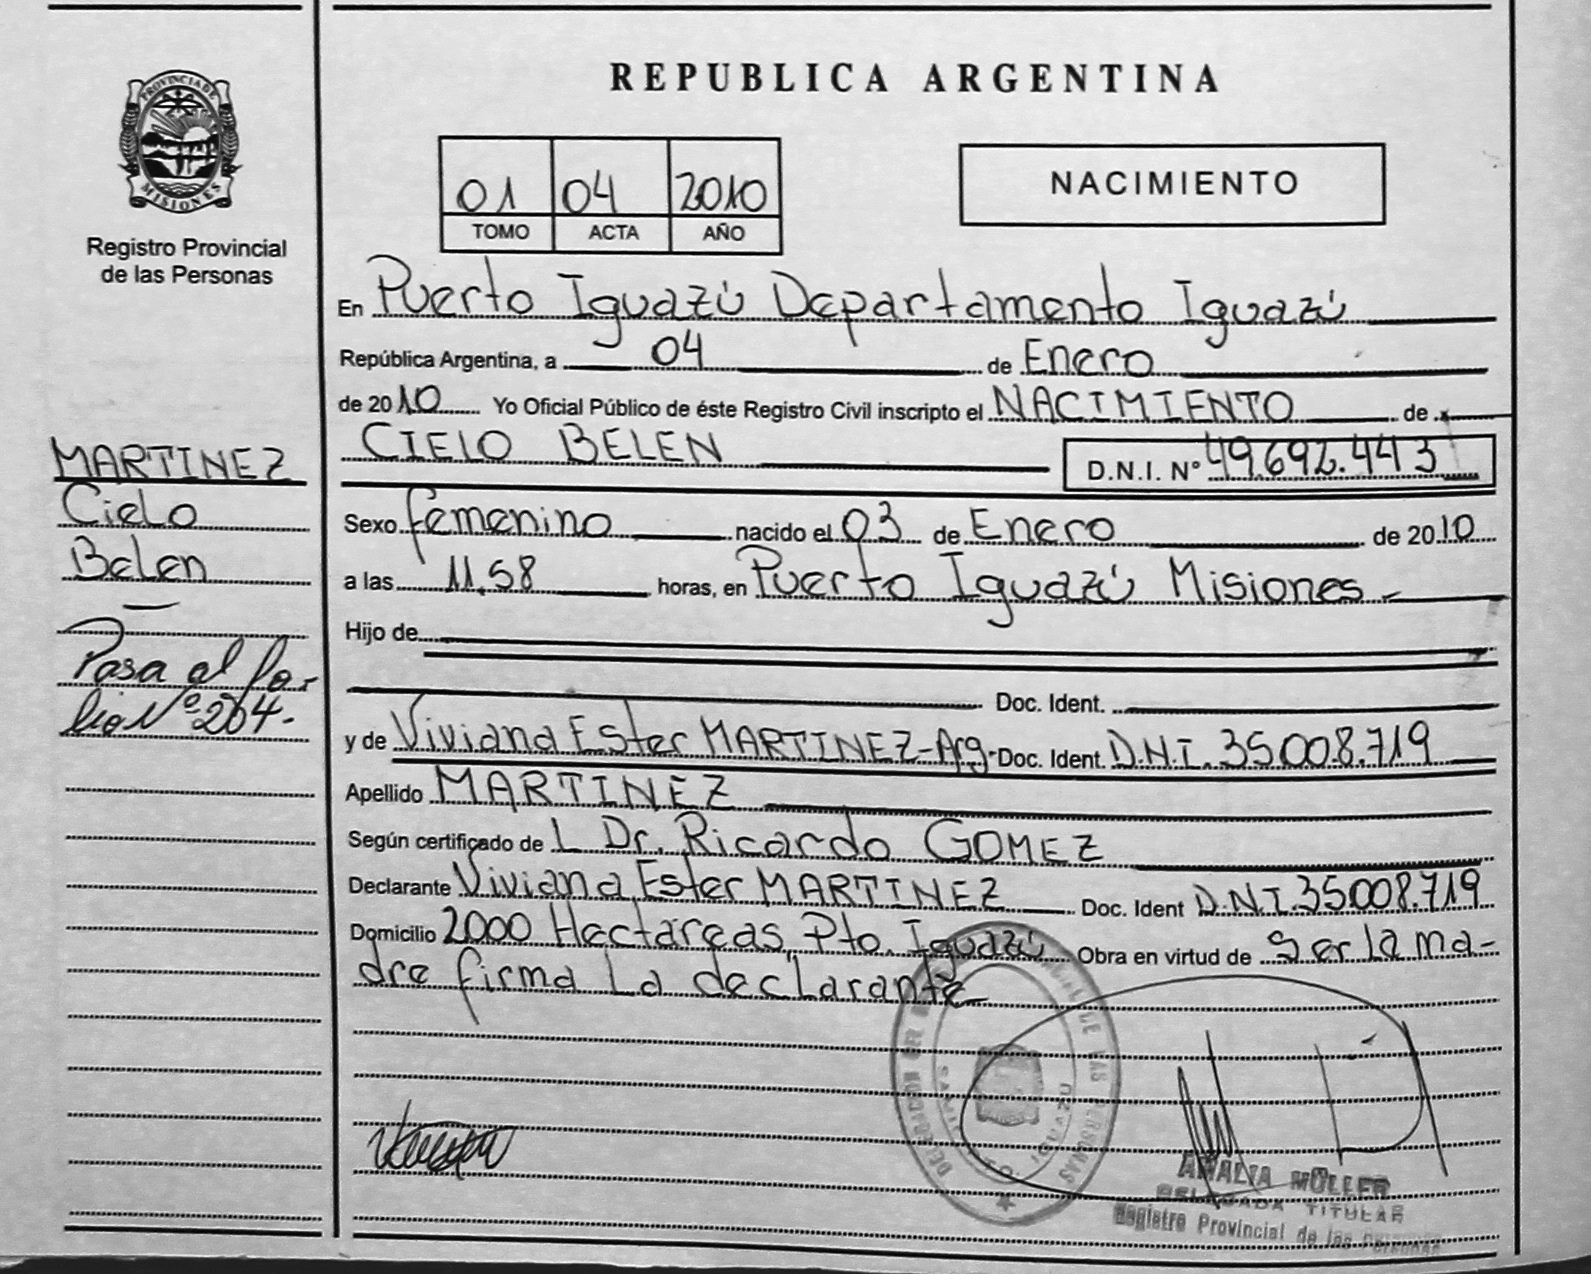 PROVINCIA DE
MISIONES
Registro Provincial
de las Personas
MARTINEZ
Cielo
Belen
Pasa al fo-
lio Nº 264.-
REPUBLICA ARGENTINA
01 04 2010
TOMO ACTA AÑO
NACIMIENTO
En Puerto Iguazú Departamento Iguazú
República Argentina, a 04 de Enero
de 2010 Yo Oficial Público de éste Registro Civil inscripto el NACIMIENTO de
CIELO BELEN D.N.I. Nº 49.692.443
Sexo femenino nacido el 03 de Enero de 2010
a las 11,58 horas, en Puerto Iguazú Misiones.-
Hijo de
Doc. Ident.
y de Viviana Ester MARTINEZ-Arg-Doc. Ident. D.N.I. 35008.719
Apellido MARTINEZ
Según certificado de L Dr. Ricardo GOMEZ
Declarante Viviana Ester MARTINEZ Doc. Ident D.N.I.35008.719
Domicilio 2000 Hectareas, Pto. Iguazú Obra en virtud de Ser la ma-
dre firma La declarante
DELEGACION DEL DE LAS PERSONAS
PTO. IGUAZU
AMALIA MÜLLER
DELEGADA TITULAR
Registro Provincial de las Personas